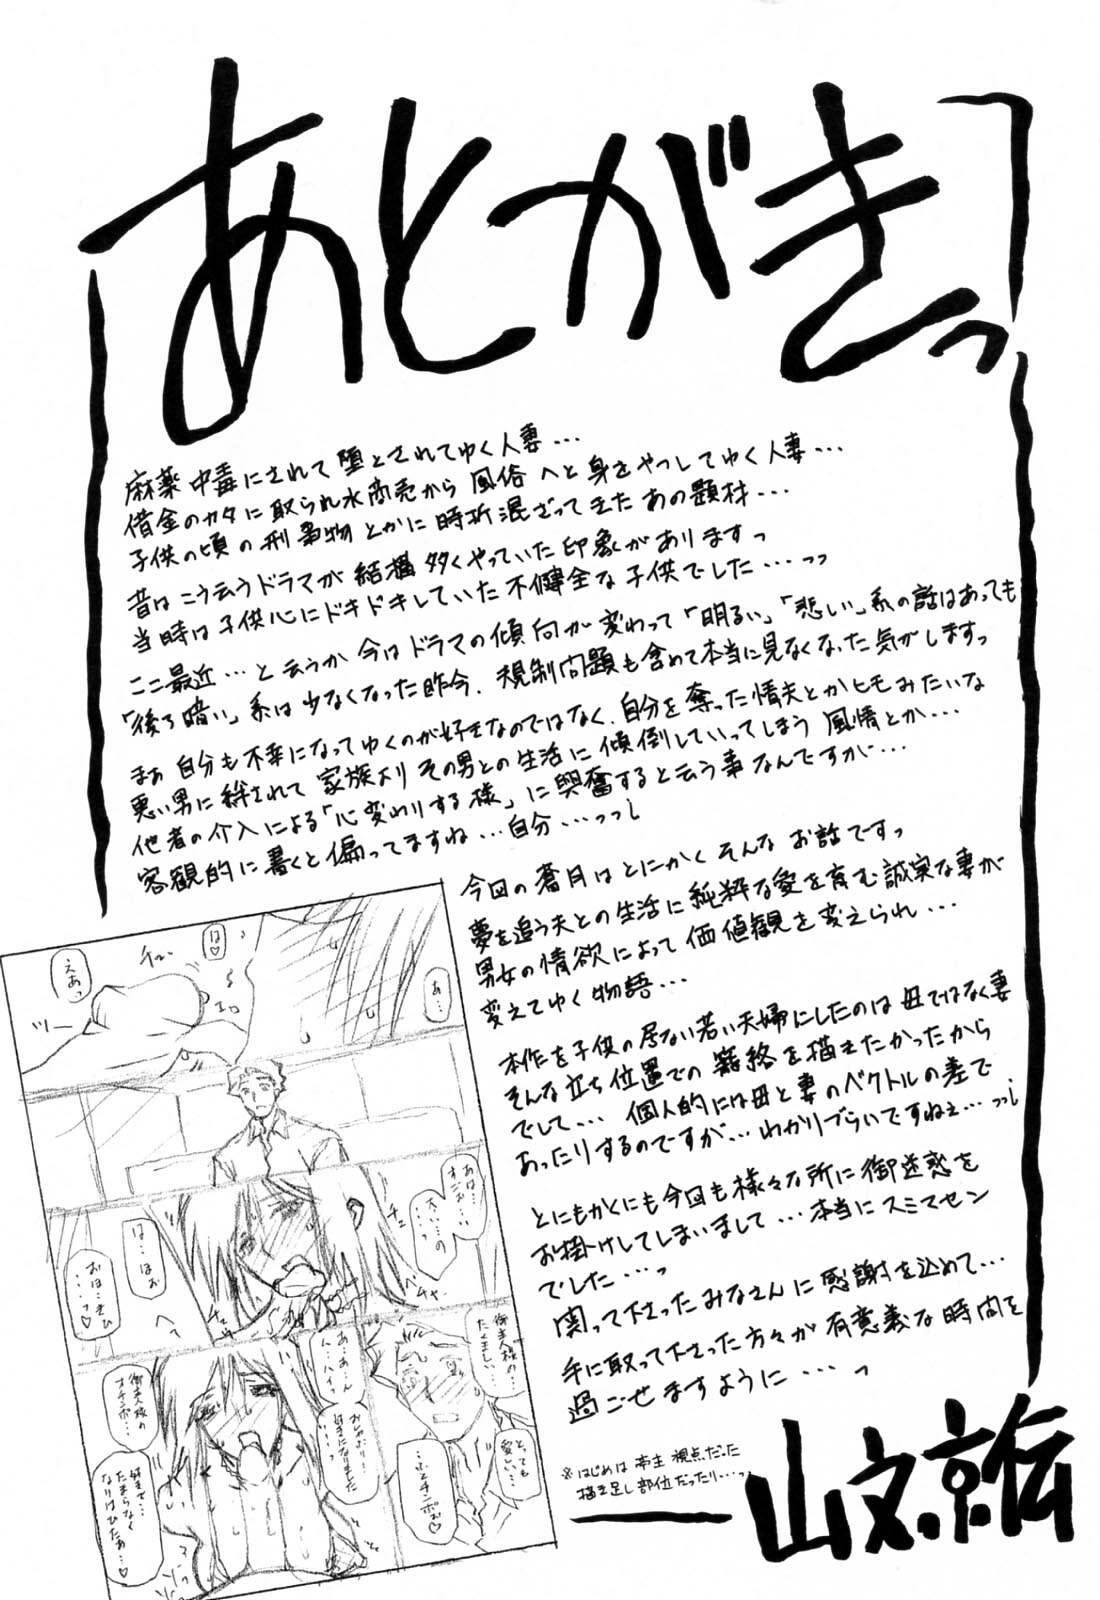 あとがきっ
麻薬中毒にされて堕とされてゆく人妻...
借金のカタに取られ水商売から風俗へと身をやつしてゆく人妻...
子供の頃の刑事物とかに時折混ざってきたあの題材...
昔はこう云うドラマが結構多くやっていた印象がありますっ
当時は子供心にドキドキしていた不健全な子供でした...っっ
ここ最近...と云うか今はドラマの傾向が変わって「明るい」「悲しい」系の話はあっても
「後ろ暗い」系は少なくなった昨今、規制問題も含めて本当に見なくなった気がしますっ
まぁ自分も不幸になってゆくのが好きなのではなく、自分を奪った情夫とかヒモみたいな
悪い男に絆されて家族よりその男との生活に傾倒していってしまう風情とか...
他者の介入による「心変わりする様」に興奮すると云う事なんですが...
客観的に書くと偏ってますね...自分...っっ
今回の蒼月はとにかくそんなお話ですっ
夢を追う夫との生活に純粋な愛を育む誠実な妻が
男女の情欲によって価値観を変えられ...
変えてゆく物語...
本作を子供の居ない若い夫婦にしたのは母ではなく妻
そんな立ち位置での葛藤を描きたかったから
でして... 個人的には母と妻のベクトルの差で
あったりするのですが...わかりづらいですねぇ...っっ
とにもかくにも今回も様々な所に御迷惑を
お掛けしてしまいまして...本当にスミマセン
でした...っ
関って下さったみなさんに感謝を込めて...
手に取って下さった方々が有意義な時間を
過ごせますように...っ
※はじめは亭主視点だった
描き足し部位だったり...っ
山文京伝
あ...
は♡
チュ
えあっ
ツー
あは...
すごお...
大い...の
チュ
は...はお
おは...きひ
...っ♡
御主人様の...
たくましい...
あ...あ...ん
ん...ハイっ
おなか...
好きになりました
とっても
愛しい...
御主人様の
オチンポ...
好きで...
たまらなく
なりはひたぁ...♡